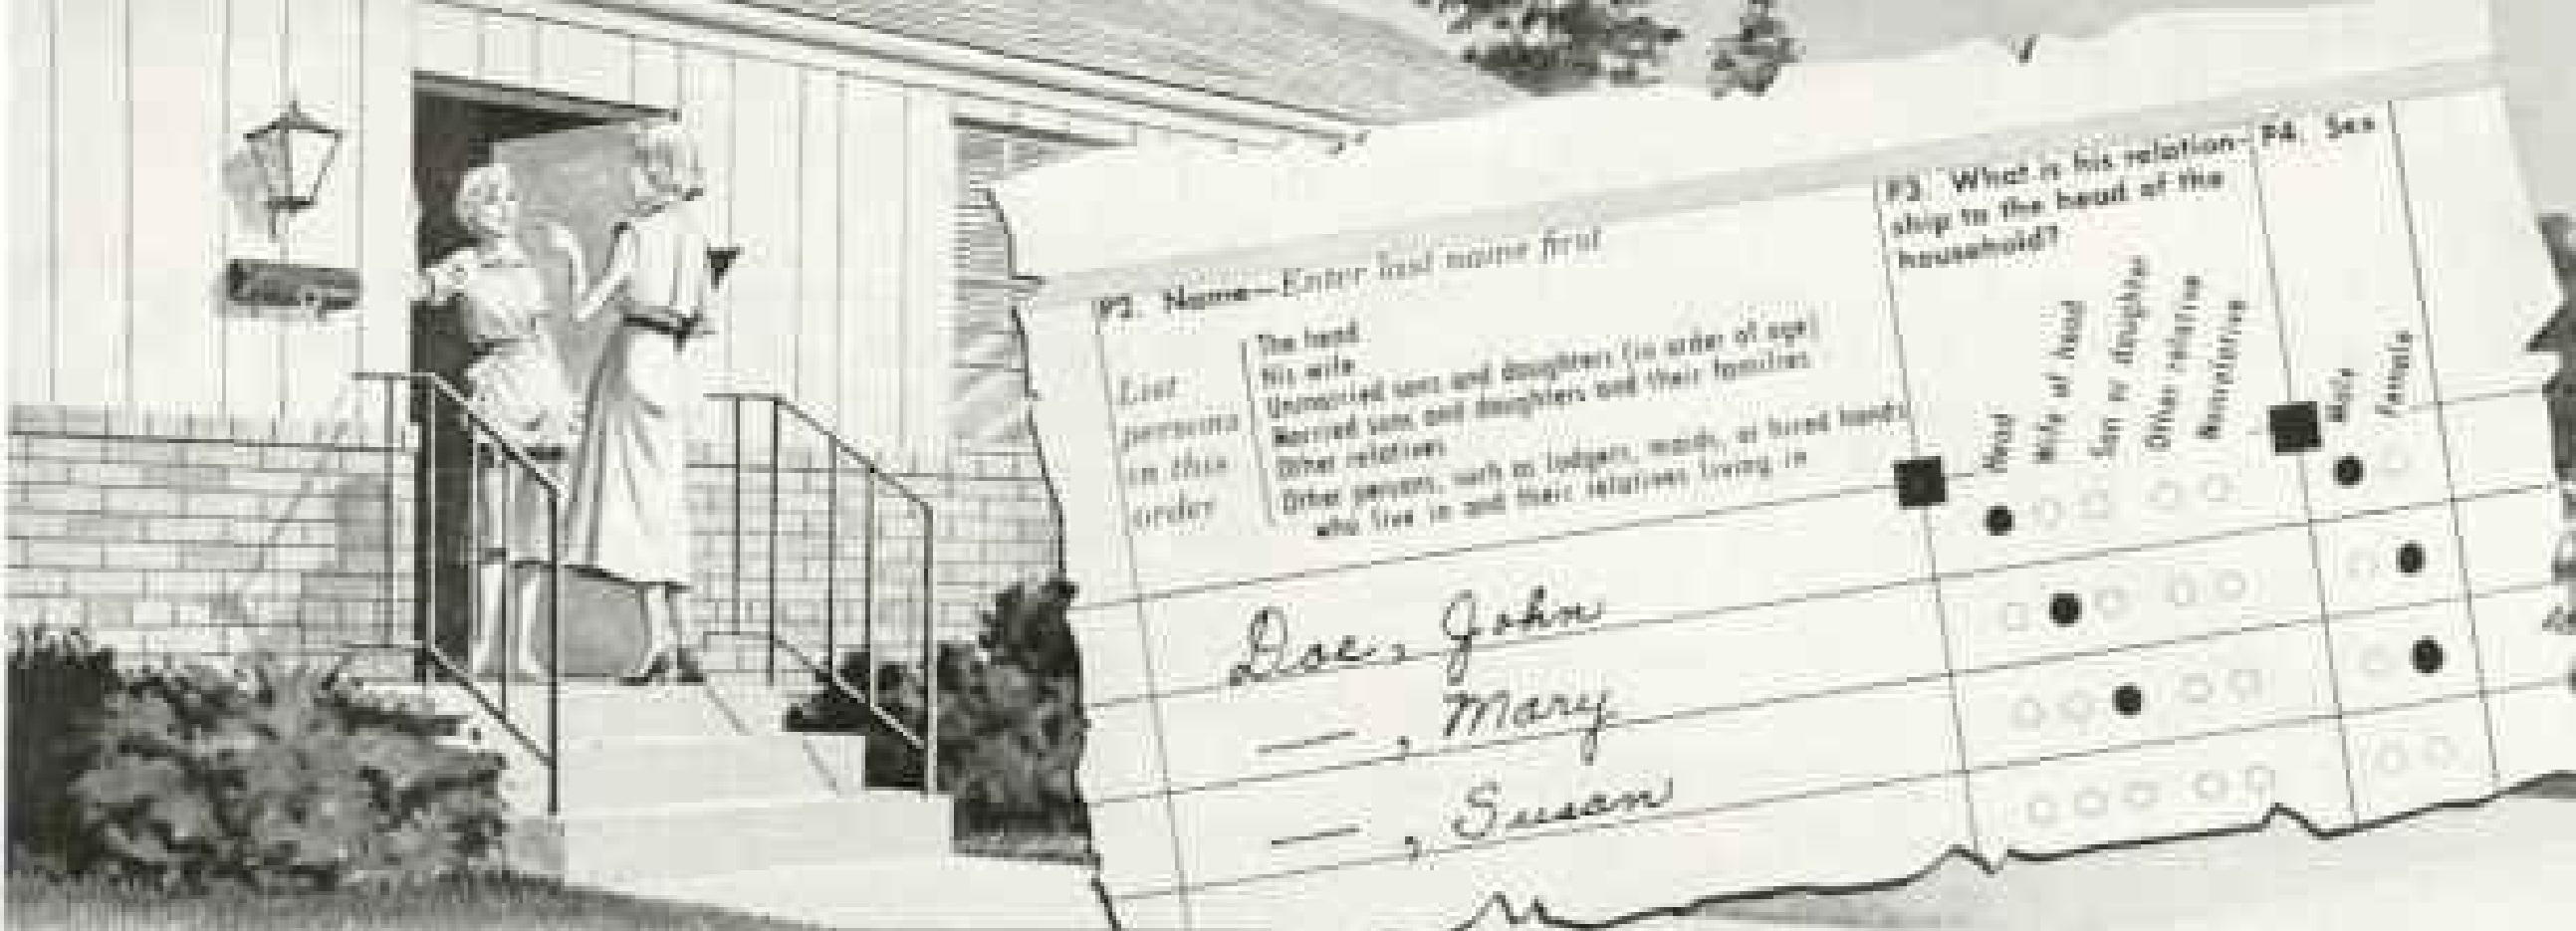 P2. Name—Enter last name first
List
persons
in this
order
The head
His wife
Unmarried sons and daughters (in order of age)
Married sons and daughters and their families
Other relatives
Other persons, such as lodgers, maids, or hired hands
who live in and their relatives living in
P3. What is his relation-
ship to the head of the
household?
Head
Wife of head
Son or daughter
Other relative
Nonrelative
P4. Sex
Male
Female
Doe, John
—, Mary
—, Susan